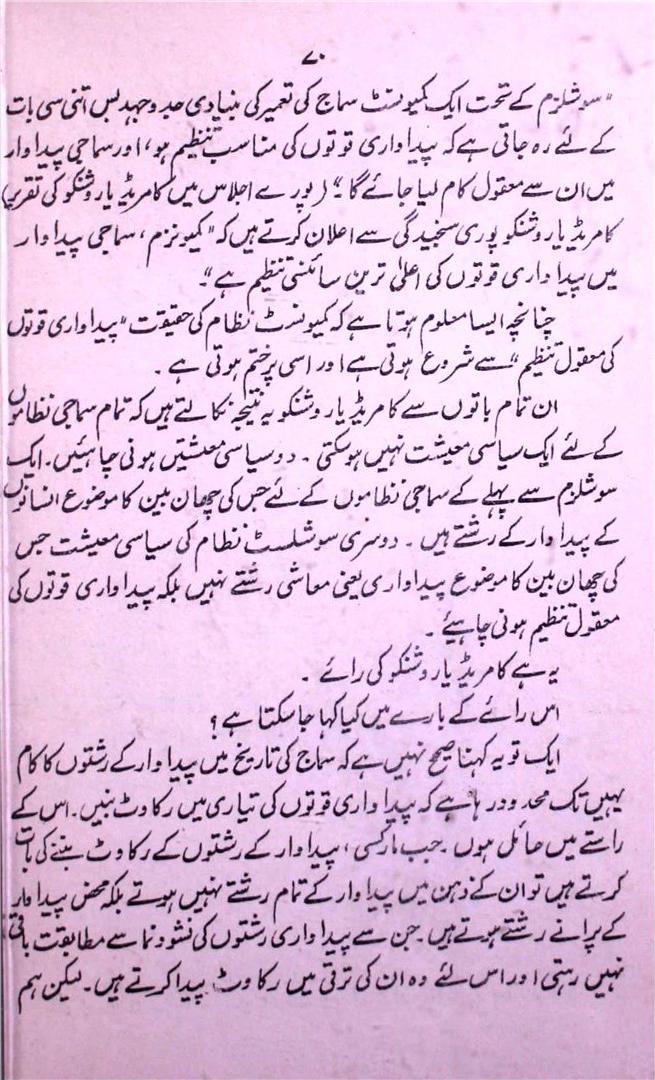 ۷۰
"سوشلزم کے تحت ایک کمیونسٹ سماج کی تعمیر کی بنیادی جدوجہد بس اتنی سی بات
کے لئے رہ جاتی ہے کہ پیداواری قوتوں کی مناسب تنظیم ہو، اور سماجی پیداوار
میں ان سے معقول کام لیا جائے گا۔" (پورے اجلاس میں کامریڈ یاروشنکو کی تقریر)
کامریڈ یاروشنکو پوری سنجیدگی سے اعلان کرتے ہیں کہ "کمیونزم، سماجی پیداوار
میں پیداواری قوتوں کی اعلیٰ ترین سائنسی تنظیم ہے"۔
چنانچہ ایسا معلوم ہوتا ہے کہ کمیونسٹ نظام کی حقیقت "پیداواری قوتوں
کی معقول تنظیم" سے شروع ہوتی ہے اور اسی پر ختم ہوتی ہے ۔
ان تمام باتوں سے کامریڈ یاروشنکو یہ نتیجہ نکالتے ہیں کہ تمام سماجی نظاموں
کے لئے ایک سیاسی معیشت نہیں ہوسکتی ۔ دو سیاسی معیشتیں ہونی چاہئیں۔ ایک
سوشلزم سے پہلے کے سماجی نظاموں کے لئے جس کی چھان بین کا موضوع انسانوں
کے پیداوار کے رشتے ہیں ۔ دوسری سوشلسٹ نظام کی سیاسی معیشت جس
کی چھان بین کا موضوع پیداواری یعنی معاشی رشتے نہیں بلکہ پیداواری قوتوں کی
معقول تنظیم ہونی چاہیئے ۔
یہ ہے کامریڈ یاروشنکو کی رائے ۔
اس رائے کے بارے میں کیا کہا جاسکتا ہے؟
ایک تو یہ کہنا صحیح نہیں ہے کہ سماج کی تاریخ میں پیداوار کے رشتوں کا کام
یہیں تک محدود رہا ہے کہ پیداواری قوتوں کی تیاری میں رکاوٹ بنیں۔ اس کے
راستے میں حائل ہوں۔ جب مارکسی، پیداوار کے رشتوں کے رکاوٹ بننے کی بات
کرتے ہیں تو ان کے ذہن میں پیداوار کے تمام رشتے نہیں ہوتے بلکہ محض پیداوار
کے پرانے رشتے ہوتے ہیں۔ جن سے پیداواری رشتوں کی نشوونما سے مطابقت باقی
نہیں رہتی اور اس لئے وہ ان کی ترقی میں رکاوٹ پیدا کرتے ہیں۔ لیکن ہم